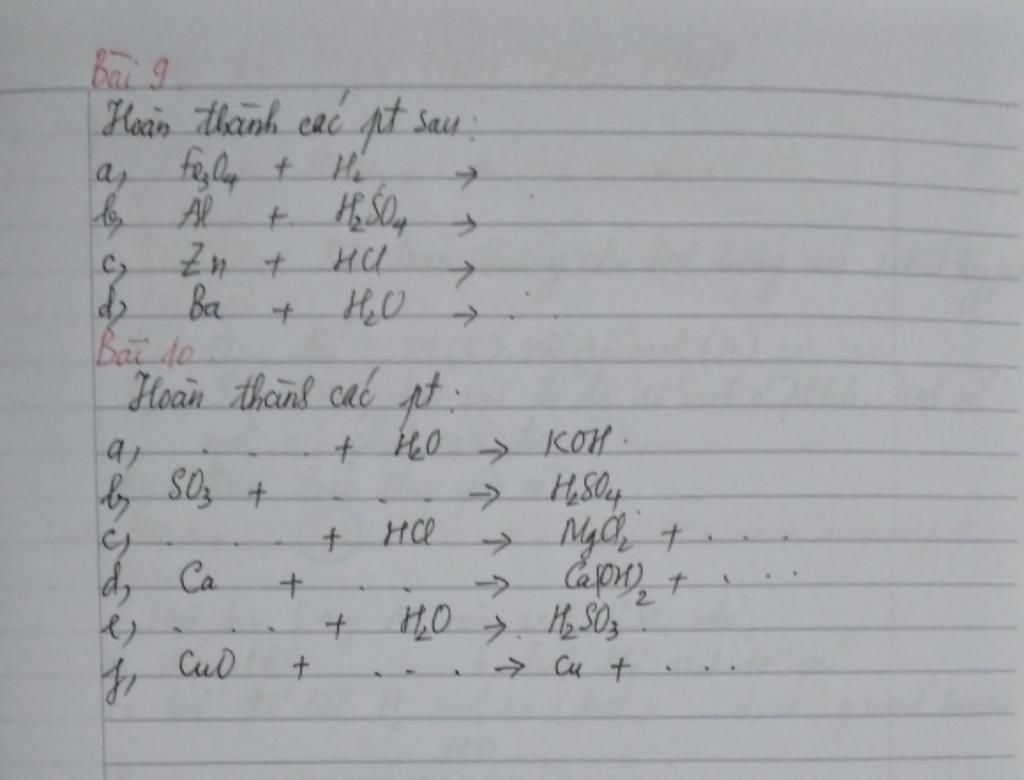 Bài 9
Hoàn thành các pt sau:
a, Fe3O4 + H2 →
b, Al + H2SO4 →
c, Zn + HCl →
d, Ba + H2O → . .
Bài 10
Hoàn thành các pt:
a, . . . . + H2O → KOH.
b, SO3 + . . . . → H2SO4
c, . . . . + HCl → MgCl2 + . . . .
d, Ca + . . . → Ca(OH)2 + . . . .
e, . . . . + H2O → H2SO3.
f, CuO + . . . . → Cu + . . . .